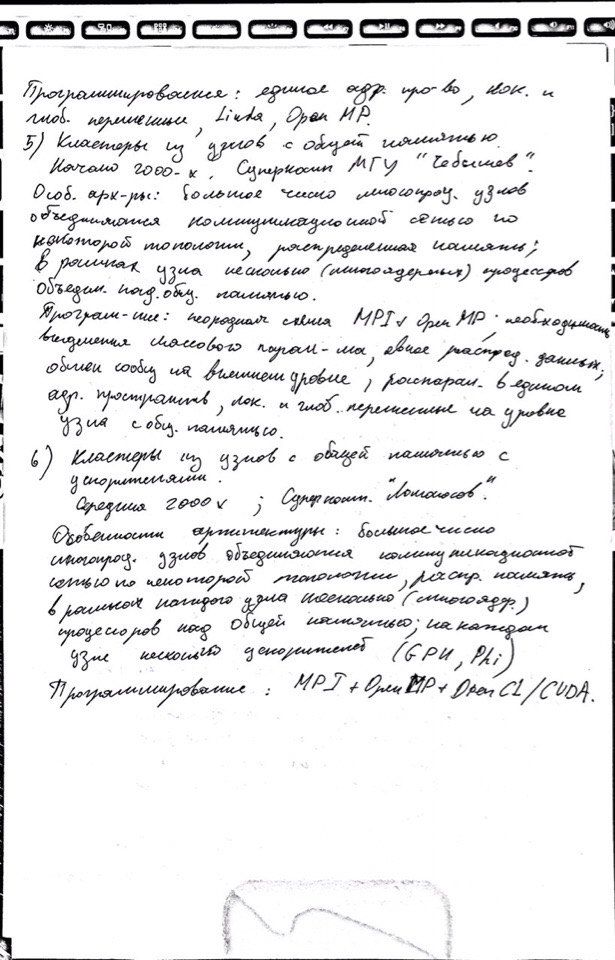 Программирование: единое адр. пр-во, лок. и
глоб. переменные, Linda, Open MP.
5) Кластеры из узлов с общей памятью.
Начало 2000-х. Суперкомп МГУ "Чебышев".
Особ. арх-ры: большое число многопроц. узлов
объединяются коммуникационной сетью по
некоторой топологии, распределенная память;
В рамках узла несколько (многоядерных) процессоров
объедин. над общ. памятью.
Програм-ние: неоднородная схема MPI + Open MP; необходимость
выделения массового парал-ма, явное распред. данных;
обмен сообщ на внешнем уровне; распарал. в едином
адр. пространств, лок. и глоб. переменные на уровне
узла с общ. памятью.
6) Кластеры из узлов с общей памятью с
ускорителями.
Середина 2000х; Суперкомп. "Ломоносов".
Особенности архитектуры: большое число
многопроц. узлов объединяются коммуникационной
сетью по некоторой топологии, распр. память,
в рамках каждого узла несколько (многоядер.)
процессоров над общей памятью; на каждом
узле несколько ускорителей (GPU, Phi)
Программирование: MPI + Open MP + Open Cl/CUDA.